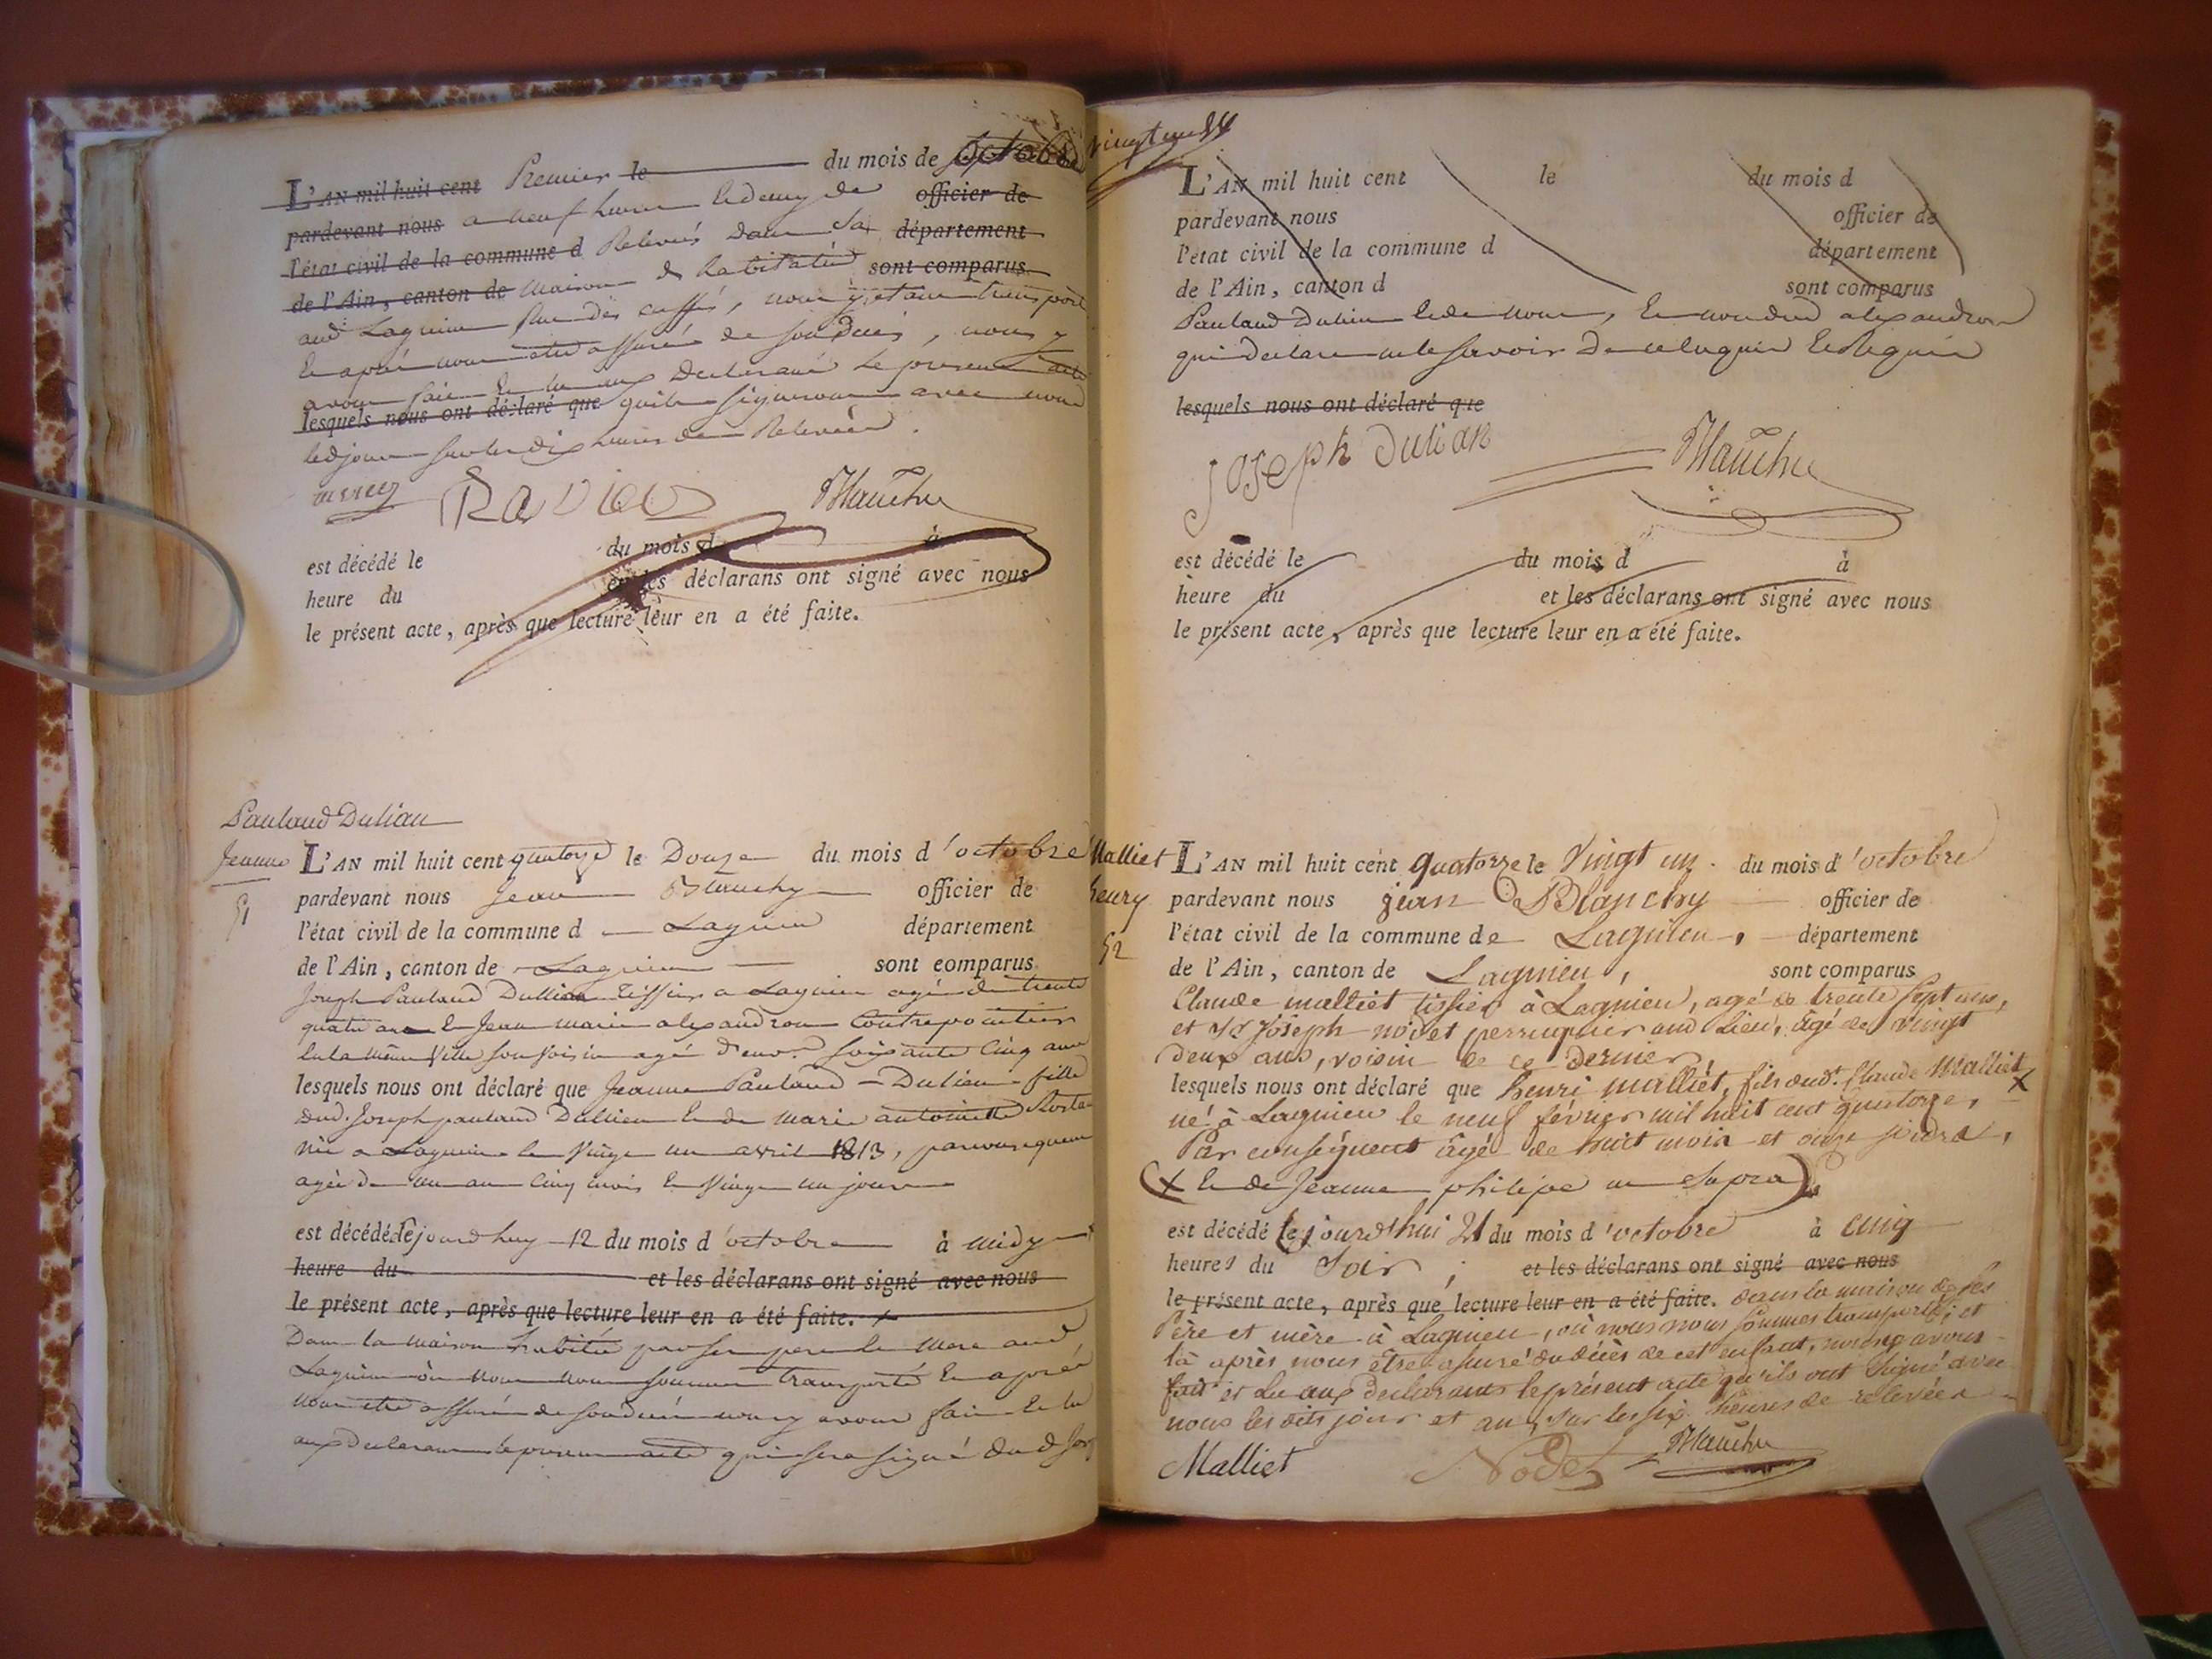 L'AN mil huit cent Premier le du mois de octobre
pardevant nous a neuf heures et demy de officier de
l'état civil de la commune d Relevée dans sa département
de l'Ain, canton de maison d habitation sont comparus
aud Lagnieu Rue des , nous y etant transporté
et après nous etre assuré de son décès, nous y
avons fait et lu aux Declarans le present acte
lesquels nous ont déclaré que qu'ils signeront avec nous
led jour sur les dix heures de Relevée.
Ravier Blanchy
est décédé le du mois d à
heure du et les déclarans ont signé avec nous
le présent acte, après que lecture leur en a été faite.
Pauland Dulian
Jeanne
51
L'AN mil huit cent quatorze le Douze du mois d'octobre
pardevant nous Jean Blanchy officier de
l'état civil de la commune d Lagnieu département
de l'Ain, canton de Lagnieu sont comparus
Joseph Pauland Dullian Tissier a Lagnieu agé de trente
quatre ans et Jean marie alexandron Contrepointier
en la même Ville son voisin agé d'env.n soixante Cinq ans
lesquels nous ont déclaré que Jeanne Pauland - Dulien fille
dud. Joseph pauland Dullien et de marie antoinette
née a Lagnieu le Vingt un avril 1813, par consequent
agée de un an Cinq mois et Vingt un jours
est décédé cejourd'huy 12 du mois d'octobre à midy
heure du et les déclarans ont signé avec nous
le présent acte, après que lecture leur en a été faite. +
Dans la maison habitée par ses pere et mere aud
Lagnieu où nous nous sommes transporté et après
nous etre assuré de son décés nous y avons fait et lu
aux Declarans le present acte qui sera signé dud Jos
vingt un
L'AN mil huit cent le du mois d
pardevant nous officier de
l'état civil de la commune d département
de l'Ain, canton d sont comparus
Pauland Dulien et de nous, et non dud alexandron
qui declare ne le savoir de ce Enquis et Requis
lesquels nous ont déclaré que
Joseph Dulian Blanchy
est décédé le du mois d à
heure du et les déclarans ont signé avec nous
le présent acte, après que lecture leur en a été faite.
Malliet
henry
52
L'AN mil huit cent quatorze le Vingt un du mois d'octobre
pardevant nous jean Blanchy officier de
l'état civil de la commune de Lagnieu, département
de l'Ain, canton de Lagnieu, sont comparus
Claude malliet tissier à Lagnieu, agé de trente sept ans,
et Sr Joseph nodet perruquier aud Lieu, âgé de vingt
deux ans, voisin de ce dernier,
lesquels nous ont déclaré que henri malliet, fils dudt. Claude Malliet +
né à Lagnieu le neuf février mil huit cent quatorze,
Par conséquent âgé de huit mois et onze jours,
(+ et de Jeanne philipe un Supra)
est décédé cejourd'hui 21 du mois d'octobre à cinq
heures du Soir, et les déclarans ont signé avec nous
le présent acte, après que lecture leur en a été faite. dans la maison de ses
Père et mère à Lagnieu, où nous nous sommes transporté; et
là après nous être assuré du décès de cet enfant, nous y avons
fait et Lu aux Declarants le présent acte qu'ils ont signé avec
nous les dits jour et an, sur les six heures de relevée
Malliet Nodet Blanchy